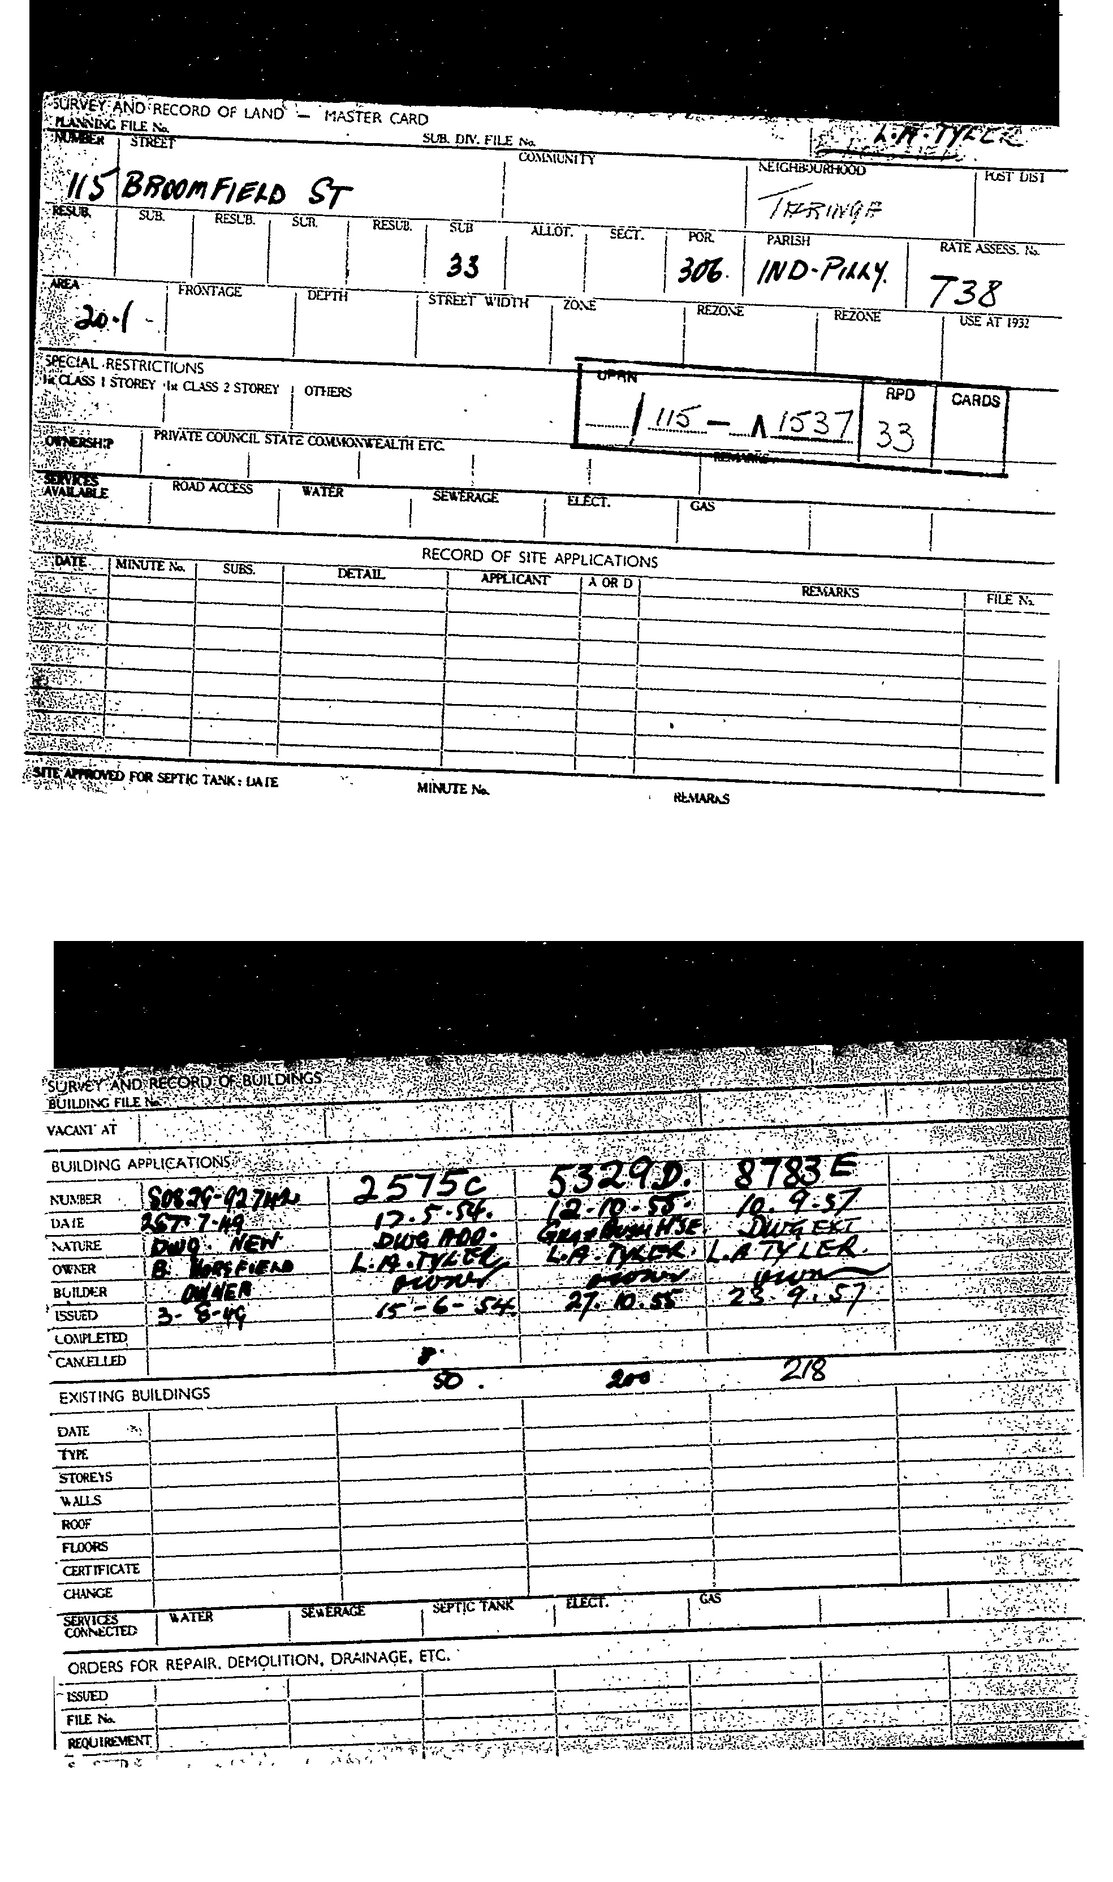 SURVEY AND RECORD OF LAND — MASTER CARD
PLANNING FILE No. SUB. DIV. FILE No. L.A. TYLER
NUMBER STREET COMMUNITY NEIGHBOURHOOD POST DIST
115 BROOMFIELD ST TARINGA
RESUB. SUB. RESUB. SUB. RESUB. SUB ALLOT. SECT. POR. PARISH RATE ASSESS. No.
33 306. IND-PILLY. T38
AREA FRONTAGE DEPTH STREET WIDTH ZONE REZONE REZONE USE AT 1932
20.1 -
SPECIAL RESTRICTIONS
1st CLASS 1 STOREY 1st CLASS 2 STOREY OTHERS
UPRN RPD CARDS
/ 115 - A 1537 33
OWNERSHIP PRIVATE COUNCIL STATE COMMONWEALTH ETC. REMARKS
SERVICES AVAILABLE ROAD ACCESS WATER SEWERAGE ELECT. GAS
RECORD OF SITE APPLICATIONS
DATE MINUTE No. SUBS. DETAIL APPLICANT A OR D REMARKS FILE No.
SITE APPROVED FOR SEPTIC TANK: DATE MINUTE No. REMARKS
SURVEY AND RECORD OF BUILDINGS
BUILDING FILE No.
VACANT AT
BUILDING APPLICATIONS
NUMBER 2575C 5329D. 8783E
DATE 17.5.54. 12-10-55. 10.9.57
NATURE DWG. NEW DWG ADD. DWG EXT
OWNER B. HORSFIELD L.A. TYLER L.A. TYLER. L.A TYLER.
BUILDER OWNER owner owner own
ISSUED 3-8-49 15-6-54. 27.10.55 23.9.57
COMPLETED
CANCELLED
50. 200 218
EXISTING BUILDINGS
DATE
TYPE
STOREYS
WALLS
ROOF
FLOORS
CERTIFICATE
CHANGE
SERVICES CONNECTED WATER SEWERAGE SEPTIC TANK ELECT. GAS
ORDERS FOR REPAIR, DEMOLITION, DRAINAGE, ETC.
ISSUED
FILE No.
REQUIREMENT